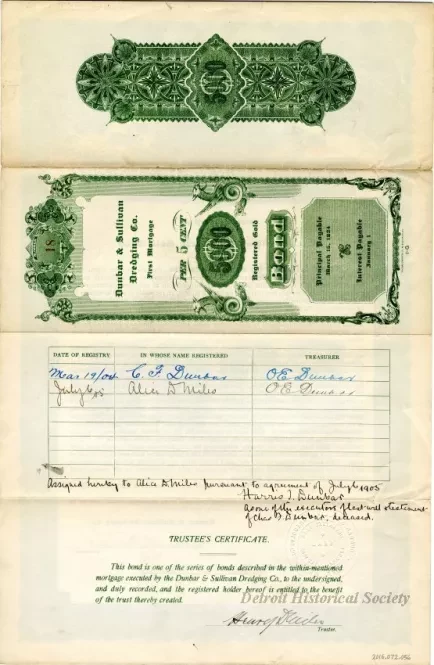 5000
18
Dunbar & Sullivan
Dredging Co.
First Mortgage
PER 5 CENT
5000
Registered Gold
Bond
Principal Payable
March 15, 1924
Interest Payable
January 1
DATE OF REGISTRY IN WHOSE NAME REGISTERED TREASURER
Mar 19/04 C. F. Dunbar O E Dunbar
July 6/05 Alice D Miles O E Dunbar
Assigned hereby to Alice D. Miles pursuant to agreement of July 6 1905
Harris T. Dunbar
as one of the executors of last will & testament
of Chas F. Dunbar, deceased.
TRUSTEE'S CERTIFICATE.
This bond is one of the series of bonds described in the within-mentioned
mortgage executed by the Dunbar & Sullivan Dredging Co., to the undersigned,
and duly recorded, and the registered holder hereof is entitled to the benefit
of the trust thereby created.
Henry
Trustee.
Detroit Historical Society